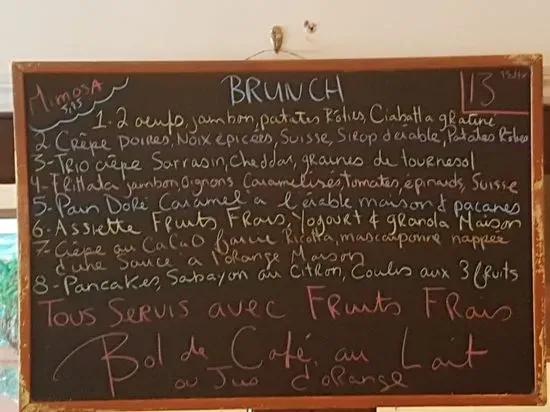 Mimosa
5,75
BRUNCH
13
1. 2 oeufs, jambon, patates Rôties, Ciabatta gratiné
2 Crêpe Poires, Noix épicées, Suisse, Sirop d'érable, Patates Rôties
3- TRIO crêpe Sarrasin, Cheddar, graines de tournesol
4- Frittata jambon, Oignons Caramélisés, tomates, épinards, Suisse
5- Pain Doré Caramel à l'érable maison & pacanes
6- Assiette Fruits Frais, Yogourt & granola Maison
7- Crêpe au CaCaO farcie Ricotta, mascarponne nappée
d'une Sauce à l'orange Maison
8- Pancakes, Sabayon au Citron, Coulis aux 3 fruits
Tous Servis avec Fruits Frais
Bol de Café au Lait
ou Jus d'orange